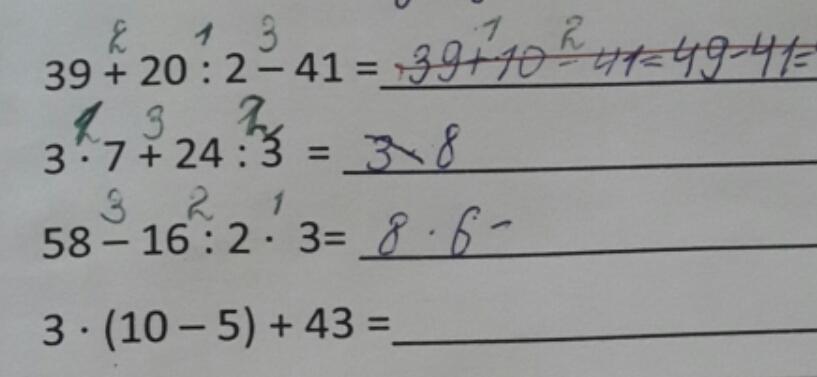 2 1 3 1 2
39 + 20 : 2 – 41 = 39+10 - 41=49-41=
1 3 2
3 · 7 + 24 : 3 = 3 8
3 2 1
58 – 16 : 2 · 3= 8 · 6 -
3 · (10 – 5) + 43 =